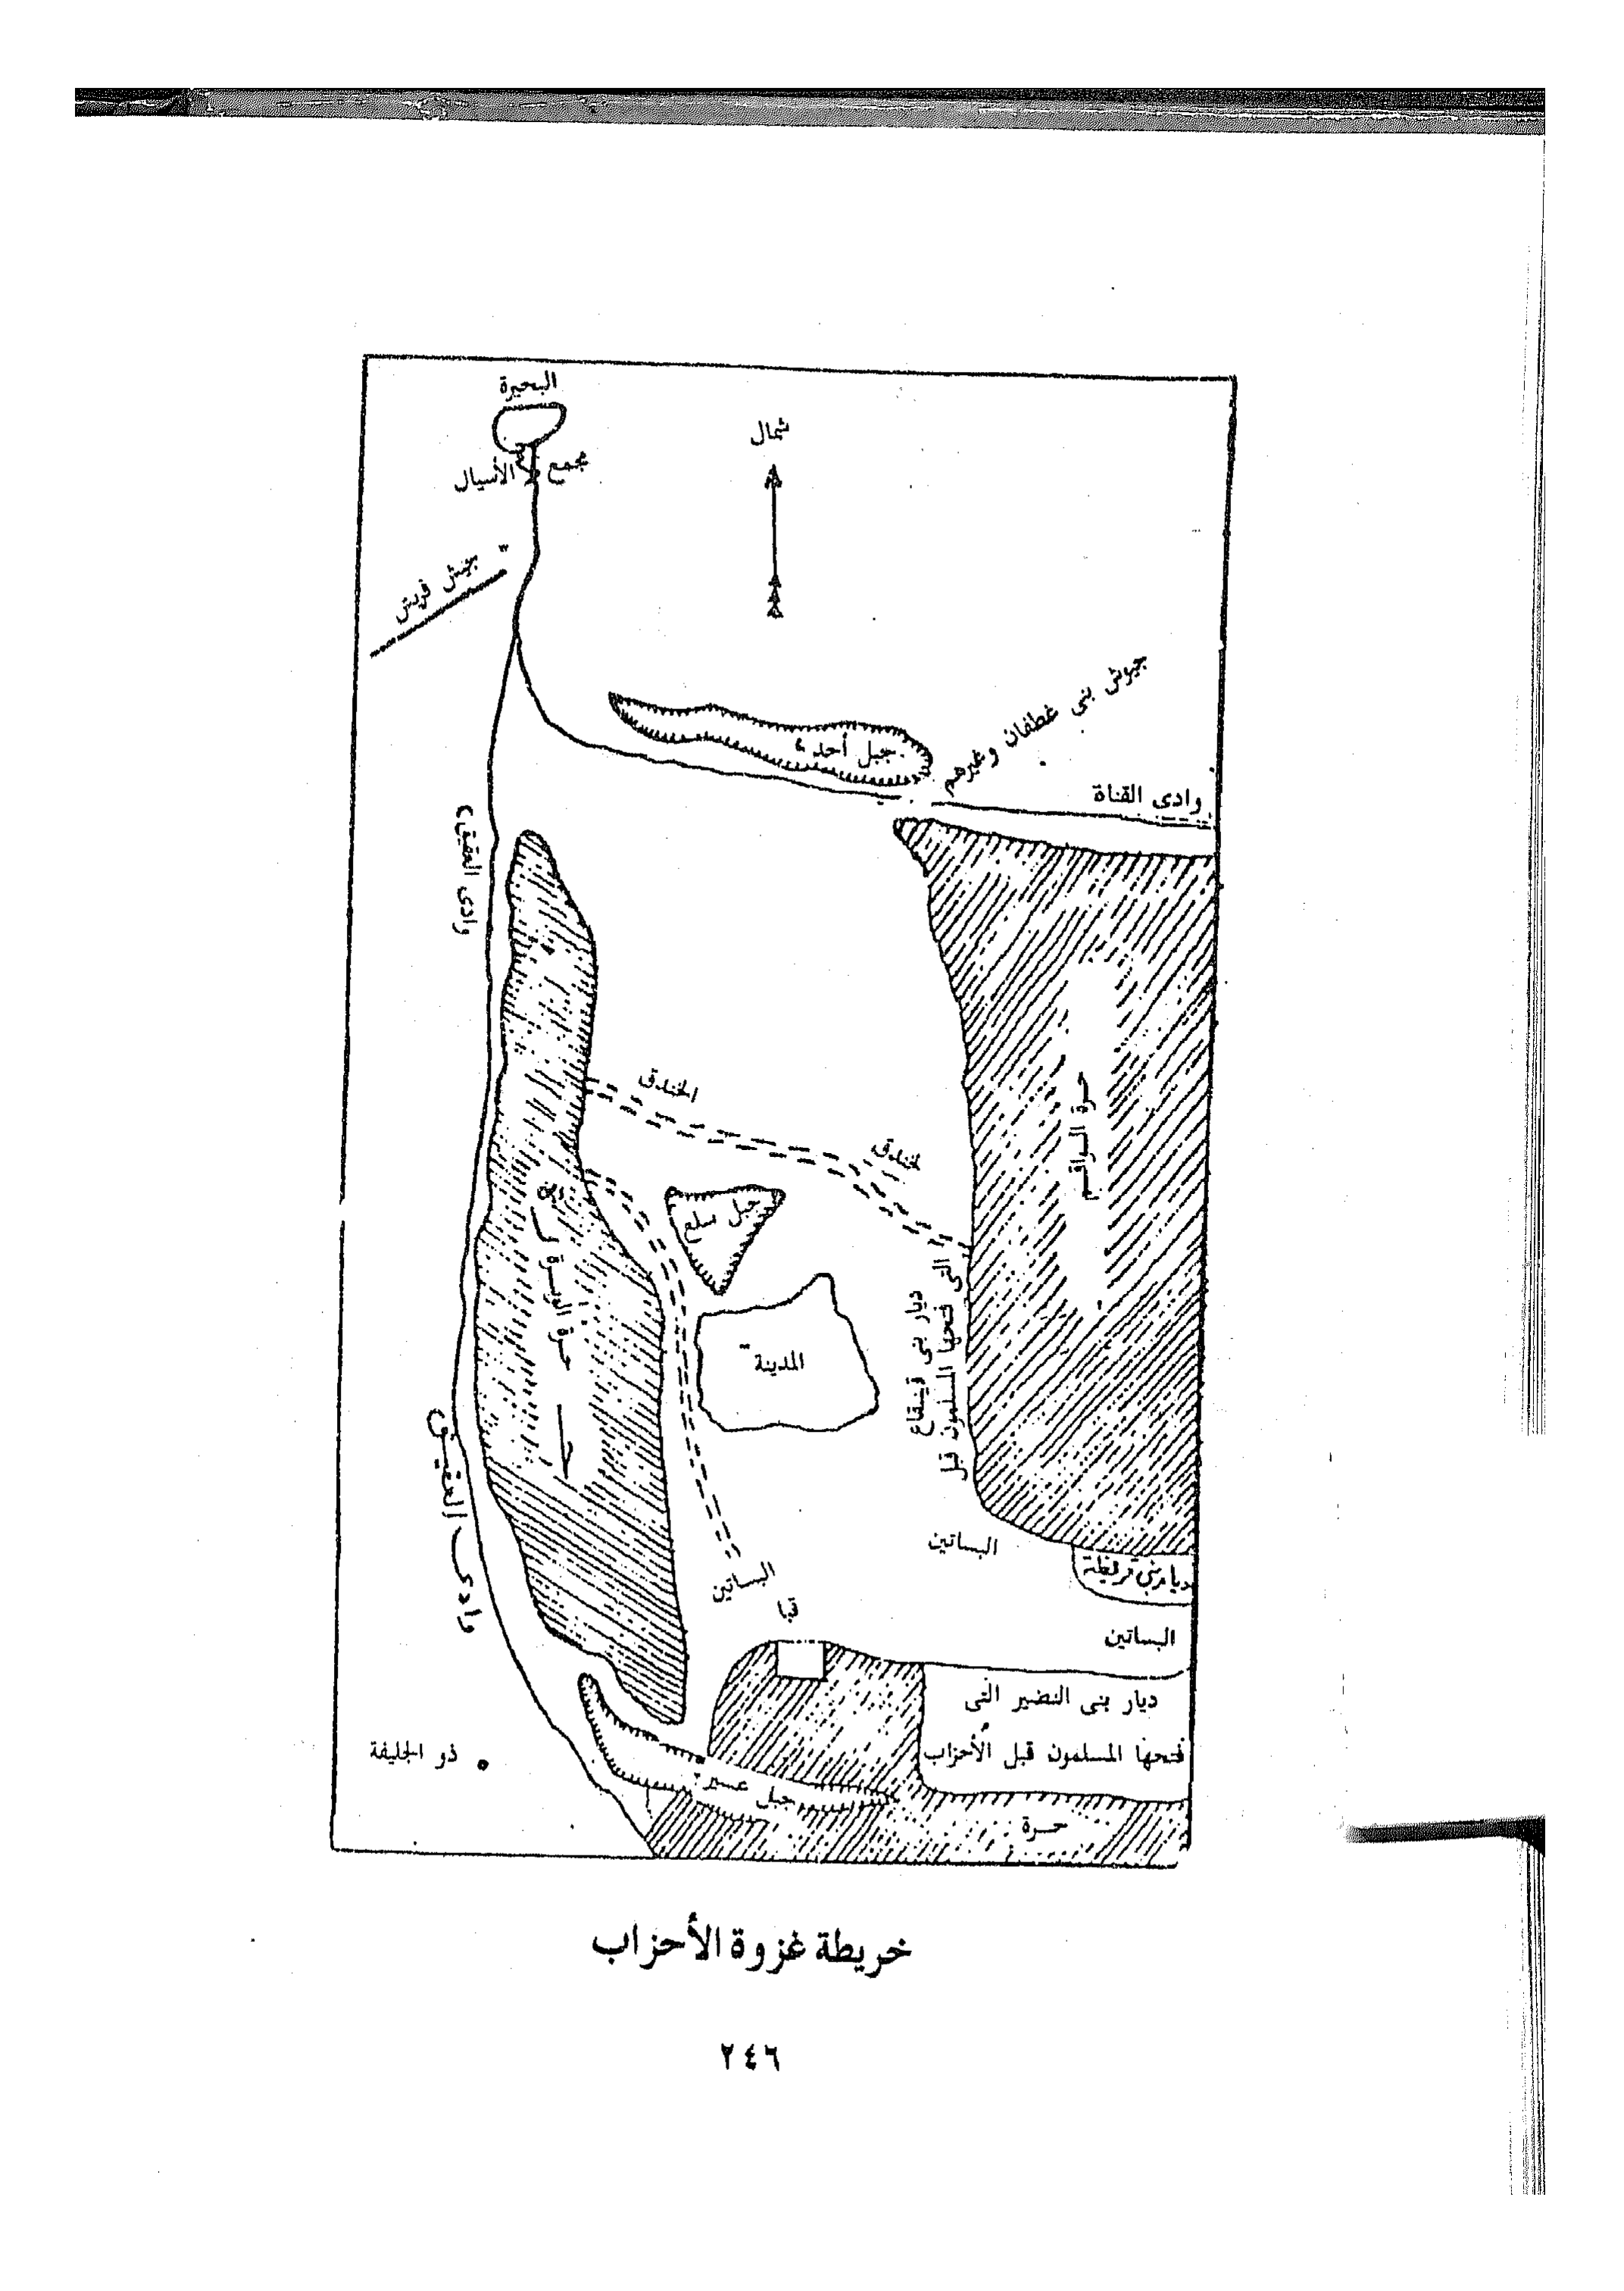 البحيرة
شمال
مجمع الأسيال
جيش قريش
جيوش بنى غطفان وغيرهم
جبل أحد
وادى القناة
وادى العقيق
الخندق
الخندق
حرة الواقم
جبل سلع
حرة الوبرة
المدينة
ديار بنى قينقاع
التى فتحها المسلمون قبل
وادى العقيق
البساتين
ديار بنى قريظة
البساتين
قبا
البساتين
ديار بنى النضير التى
فتحها المسلمون قبل الأحزاب
ذو الحليفة
جبل عسير
حرة
خريطة غزوة الأحزاب
٢٤٦